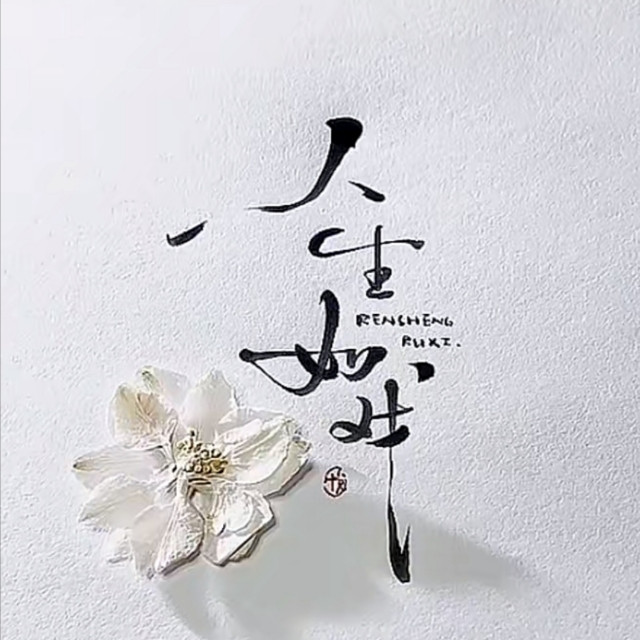 人生如戏
RENSHENG
RUXI.